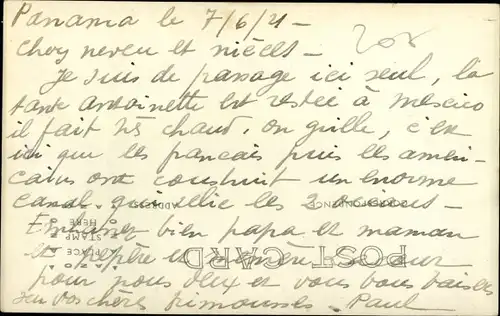 Panama le 7/6/21 -
Chers neveu et nièces -
Je suis de passage ici seul, la
tante Antoinette est restée à Mexico
il fait très chaud, on grille, c'est
ici que les français puis les améri-
cains ont construit un énorme
canal qui relie les 2 océans -
CORRESPONDENCE ADDRESS
Embrassez bien papa et maman
PLACE STAMP HERE
et pépère et mémère
POST CARD
pour nous deux et vous bons baisers
sur vos chères frimousses. Paul